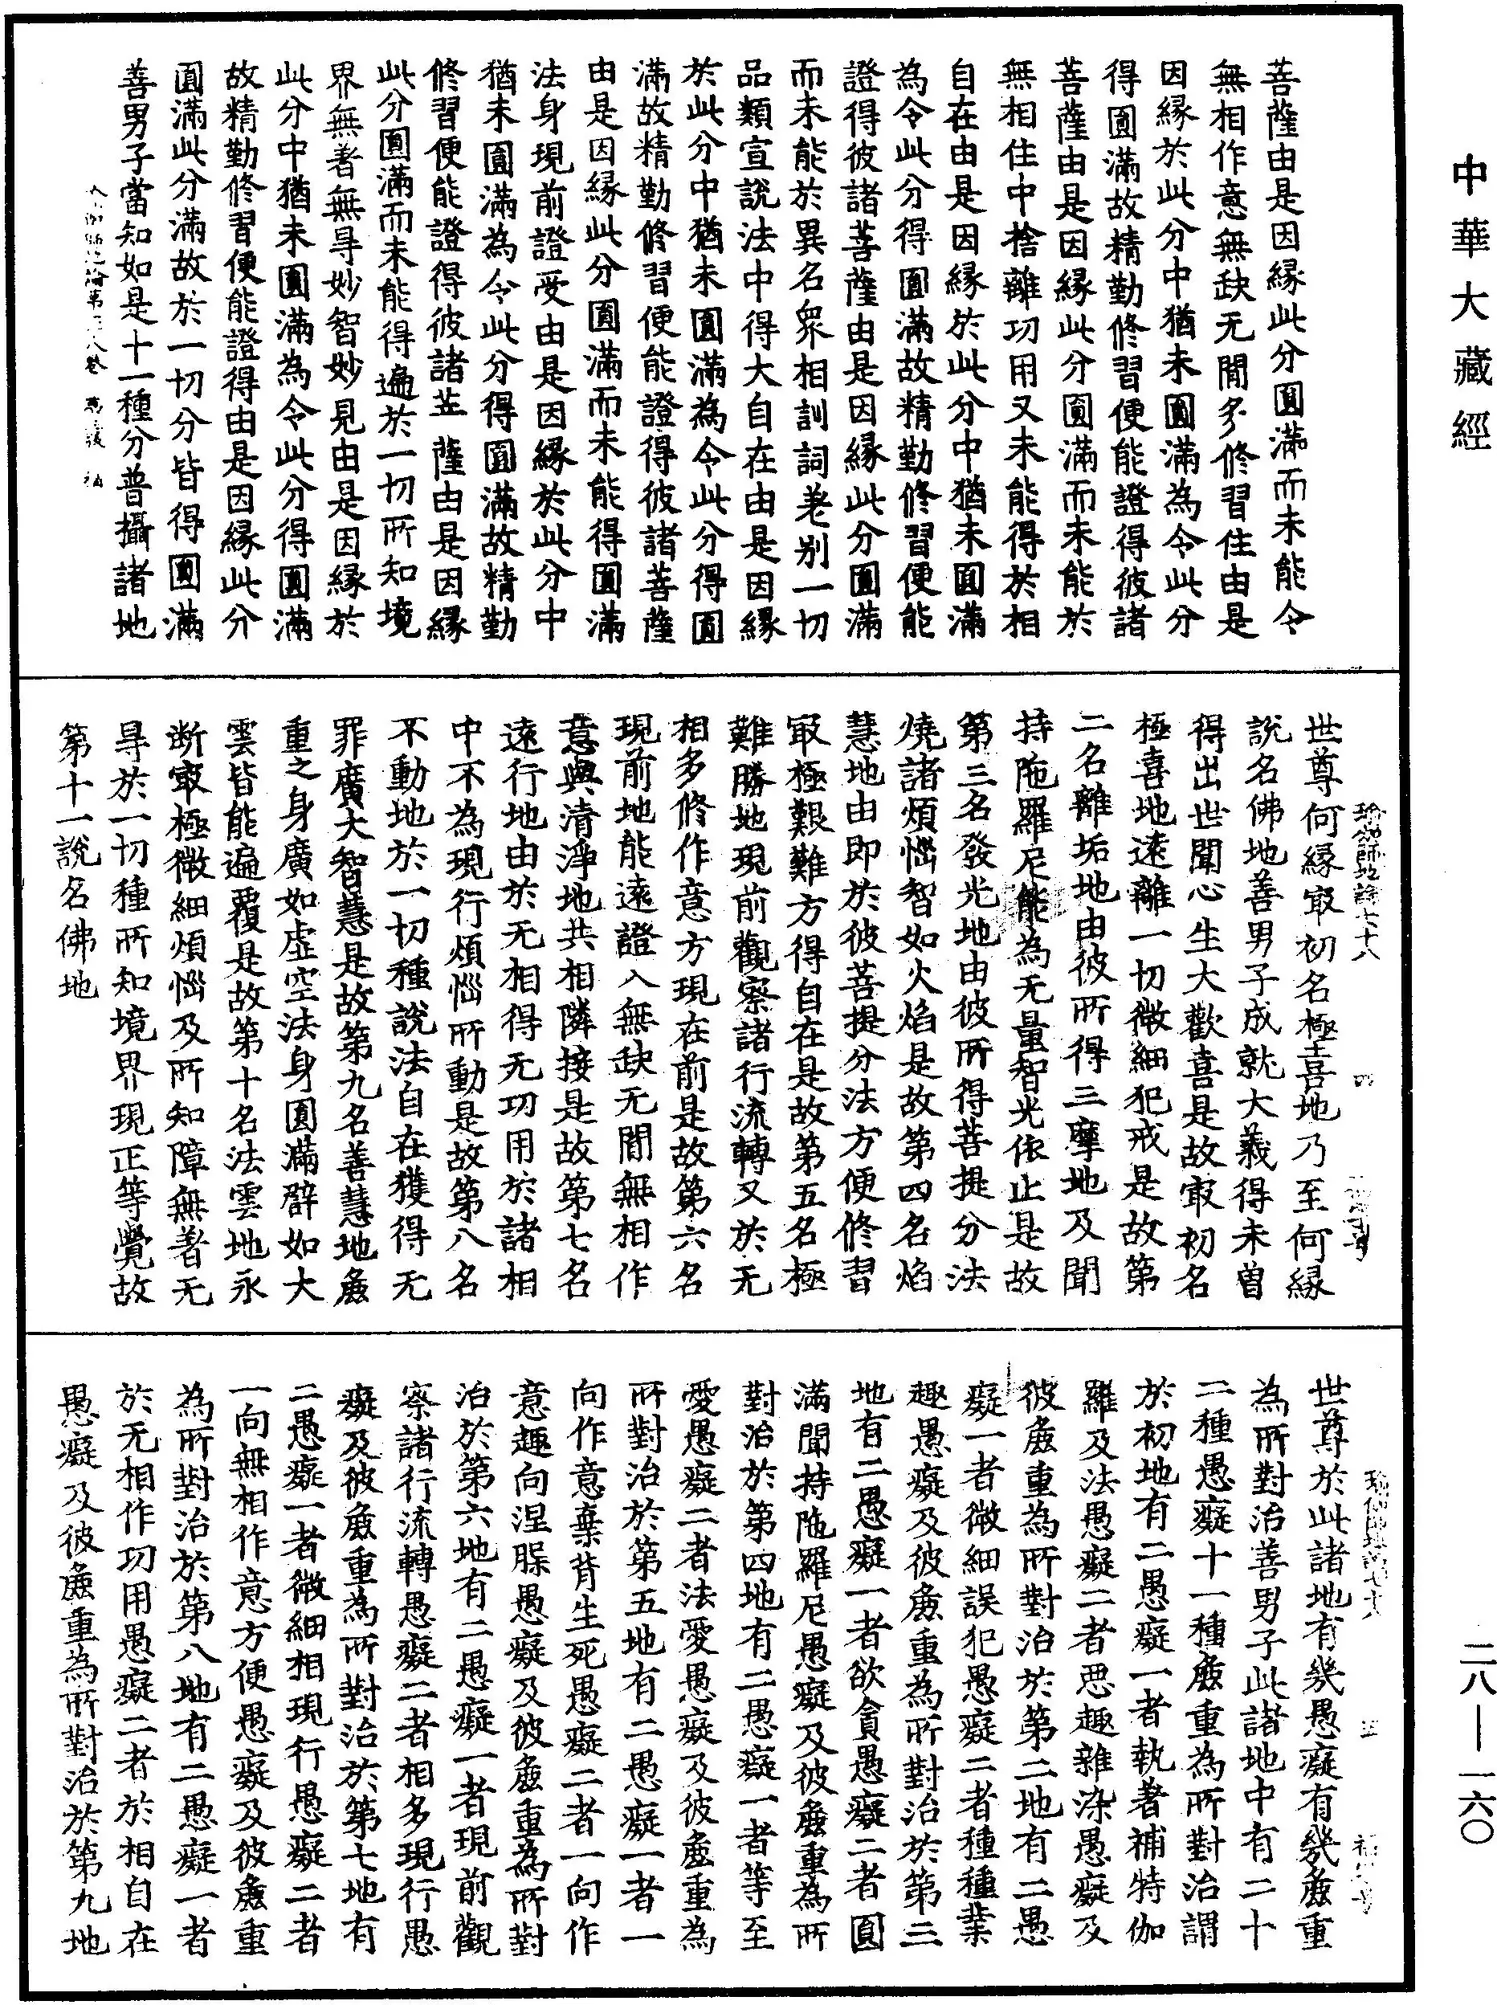 中華大藏經
菩薩由是因緣此分圓滿而未能令
無相作意無缺无間多修習住由是
因緣於此分中猶未圓滿為令此分
得圓滿故精勤修習便能證得彼諸
菩薩由是因緣此分圓滿而未能於
無相住中捨離功用又未能得於相
自在由是因緣於此分中猶未圓滿
為令此分得圓滿故精勤修習便能
證得彼諸菩薩由是因緣此分圓滿
而未能於異名眾相訓詞差別一切
品類宣說法中得大自在由是因緣
於此分中猶未圓滿為令此分得圓
滿故精勤修習便能證得彼諸菩薩
由是因緣此分圓滿而未能得圓滿
法身現前證受由是因緣於此分中
猶未圓滿為令此分得圓滿故精勤
修習便能證得彼諸菩薩由是因緣
此分圓滿而未能得遍於一切所知境
界無著無㝵妙智妙見由是因緣於
此分中猶未圓滿為令此分得圓滿
故精勤修習便能證得由是因緣此分
圓滿此分滿故於一切分皆得圓滿
善男子當知如是十一種分普攝諸地
瑜伽師地論七十八 四
世尊何緣㝡初名極喜地乃至何緣
說名佛地善男子成就大義得未曾
得出世間心生大歡喜是故㝡初名
極喜地遠離一切微細犯戒是故第
二名離垢地由彼所得三摩地及聞
持陁羅尼能為无量智光依止是故
第三名發光地由彼所得菩提分法
燒諸煩惱智如火焰是故第四名焰
慧地由即於彼菩提分法方便修習
㝡極艱難方得自在是故第五名極
難勝地現前觀察諸行流轉又於无
相多修作意方現在前是故第六名
現前地能遠證入無缺无間無相作
意與清淨地共相隣接是故第七名
遠行地由於无相得无功用於諸相
中不為現行煩惱所動是故第八名
不動地於一切種說法自在獲得无
罪廣大智慧是故第九名善慧地麁
重之身廣如虛空法身圓滿譬如大
雲皆能遍覆是故第十名法雲地永
斷㝡極微細煩惱及所知障無著无
㝵於一切種所知境界現正等覺故
第十一說名佛地
世尊於此諸地有幾愚癡有幾麁重
為所對治善男子此諸地中有二十
二種愚癡十一種麁重為所對治謂
於初地有二愚癡一者執著補特伽
羅及法愚癡二者惡趣雜染愚癡及
彼麁重為所對治於第二地有二愚
癡一者微細誤犯愚癡二者種種業
趣愚癡及彼麁重為所對治於第三
地有二愚癡一者欲貪愚癡二者圓
滿聞持陁羅尼愚癡及彼麁重為所
對治於第四地有二愚癡一者等至
愛愚癡二者法愛愚癡及彼麁重為
所對治於第五地有二愚癡一者一
向作意棄背生死愚癡二者一向作
意趣向涅槃愚癡及彼麁重為所對
治於第六地有二愚癡一者現前觀
察諸行流轉愚癡二者相多現行愚
癡及彼麁重為所對治於第七地有
二愚癡一者微細相現行愚癡二者
一向無相作意方便愚癡及彼麁重
為所對治於第八地有二愚癡一者
於无相作功用愚癡二者於相自在
愚癡及彼麁重為所對治於第九地
二八—一六〇